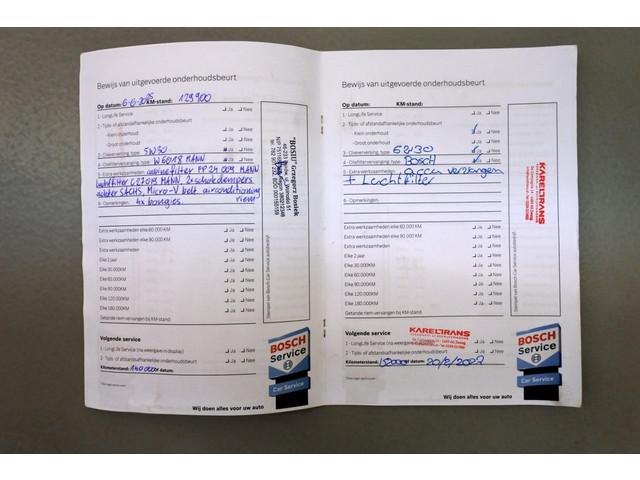 Bewijs van uitgevoerde onderhoudsbeurt
Op datum: 6-6-2025 KM-stand: 129900
1 - LongLife Service Ja Nee
2 - Tijds- of afstandsafhankelijke onderhoudsbeurt
- Klein onderhoud Ja Nee
- Groot onderhoud Ja Nee
3 - Olieverversing, type: 5W30 Ja Nee
4 - Oliefiltervervanging, type: W6018 MANN Ja Nee
5 - Extra werkzaamheden: cabinefilter FP 24 009 MANN
luchtfilter C27019 MANN, 2x schokdempers
achter SACHS, Micro-V belt airconditioning
riem
6 - Opmerkingen: 4x bougies
Extra werkzaamheden elke 60.000 KM Ja Nee
Extra werkzaamheden elke 90.000 KM Ja Nee
Extra werkzaamheden
Elke 2 jaar Ja Nee
Elke 30.000KM Ja Nee
Elke 60.000KM Ja Nee
Elke 90.000KM Ja Nee
Elke 120.000KM Ja Nee
Elke 180.000KM Ja Nee
Getande riem vervangen bij KM-stand:
"BOSIU" Grzegorz Bosiek
Stempel van Bosch Car Service autobedrijf:
Volgende service
1 - LongLife Service (na weergave in display) Ja Nee
2 - Tijds- of afstandsafhankelijke onderhoudsbeurt Ja Nee
Kilometerstand: 140000 of datum:
BOSCH
Service
Car Service
Wij doen alles voor uw auto
Bewijs van uitgevoerde onderhoudsbeurt
Op datum: KM-stand:
1 - LongLife Service Ja Nee
2 - Tijds- of afstandsafhankelijke onderhoudsbeurt
- Klein onderhoud Ja Nee
- Groot onderhoud Ja Nee
3 - Olieverversing, type: 5W30 Ja Nee
4 - Oliefiltervervanging, type: BOSCH Ja Nee
5 - Extra werkzaamheden: accu vervangen
+ Luchtfilter
6 - Opmerkingen:
Extra werkzaamheden elke 60.000 KM Ja Nee
Extra werkzaamheden elke 90.000 KM Ja Nee
Extra werkzaamheden
Elke 2 jaar Ja Nee
Elke 30.000KM Ja Nee
Elke 60.000KM Ja Nee
Elke 90.000KM Ja Nee
Elke 120.000KM Ja Nee
Elke 180.000KM Ja Nee
Getande riem vervangen bij KM-stand:
KARELTRANS
Stempel van Bosch Car Service autobedrijf:
Volgende service
KARELTRANS
1 - LongLife Service (na weergave in display) Ja Nee
2 - Tijds- of afstandsafhankelijke onderhoudsbeurt Ja Nee
Kilometerstand: of datum:
BOSCH
Service
Car Service
Wij doen alles voor uw auto